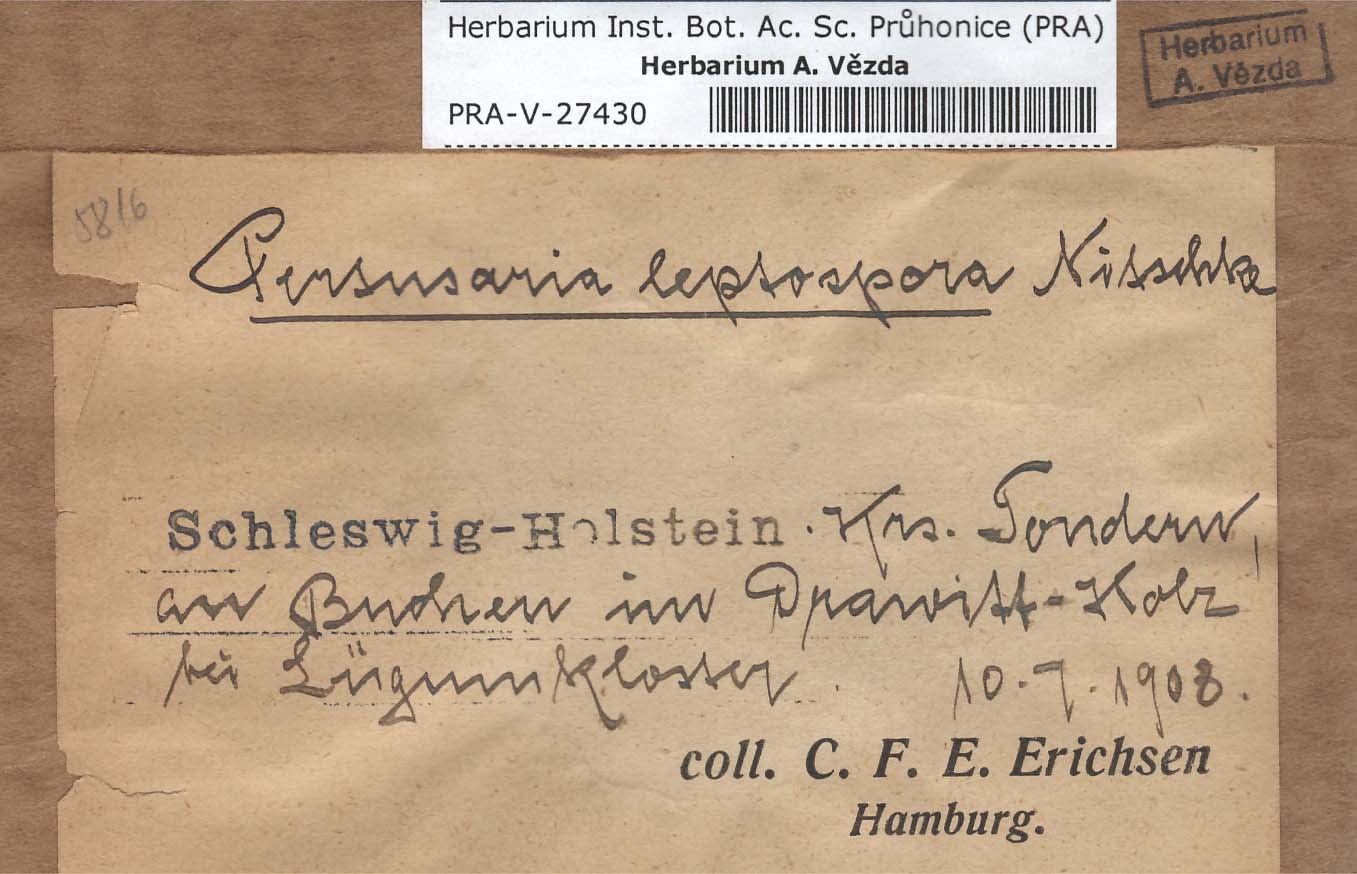 Herbarium Inst. Bot. Ac. Sc. Průhonice (PRA)
Herbarium A. Vězda
PRA-V-27430
Herbarium
A. Vězda
5816
Pertusaria leptospora Nitschke
Schleswig-Holstein. Krs. Tondern,
an Buchen im Drawitt-Holz
bei Lügumkloster. 10.7.1908.
coll. C. F. E. Erichsen
Hamburg.